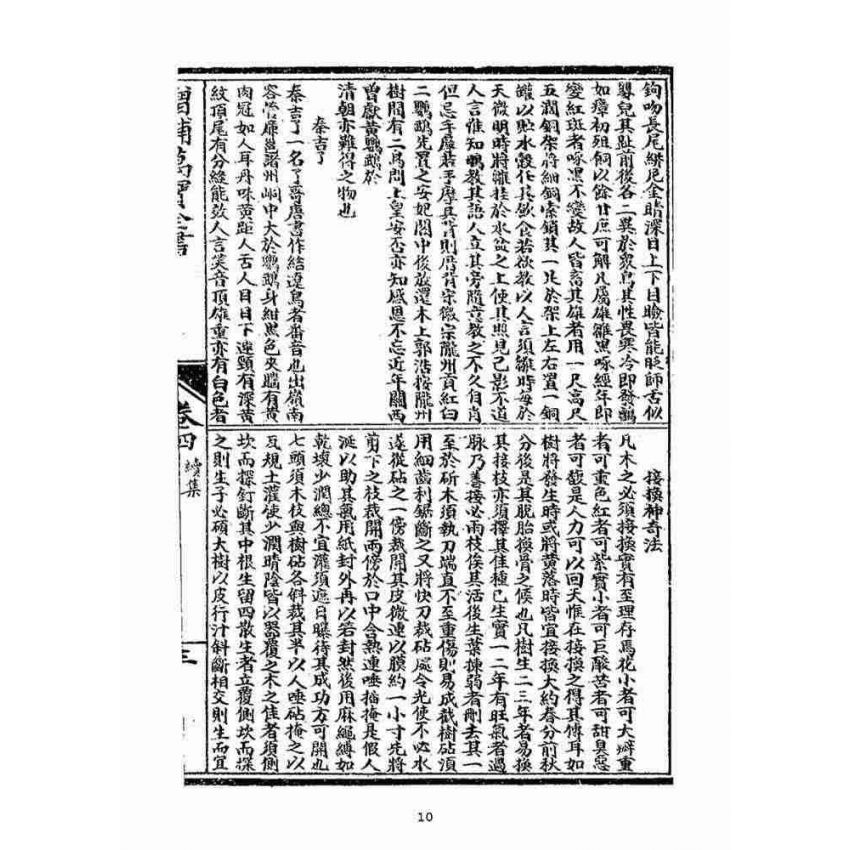 鉤吻長尾紺尾金睛深目上下目瞼皆能眨師舌似
嬰兒其趾前後各二異於衆鳥其性畏寒冷即發顫
如瘴初殂飼以餘甘庶可解凡屬雄雛黑啄經年即
變紅斑者啄黑不變故人皆畜其雄者用一尺高尺
五濶銅架將細銅索鎖其一足於架上左右置一銅
罐以貯水穀任其飲食若欲教以人言須雛時每於
天微明時將籠挂於水盆之上使其照見己影不道
人言惟知鸚教其語人立其旁隨意教之不久自肖
但忌手摩若手摩其背則瘖宋徽宗隴州貢紅白
二鸚鵡先置之安妃閣中後放還本土郭浩按隴州
樹間有二鳥問上皇安否亦知感恩不忘近年關西
曾獻黃鸚鵡於
清朝亦難得之物也
秦吉了
秦吉了一名了哥唐書作結遼鳥者番音也出嶺南
容管廉邕諸州峒中大於鸚鵡身紺黑色夾腦有黃
肉冠如人耳丹咮黃距人舌人目目下連頸有深黃
紋頂尾有分縫能效人言笑音頂雄重亦有白色者
接換神奇法
凡木之必須接換實有至理存焉花小者可大瓣單
者可重色紅者可紫實小者可巨酸苦者可甜臭惡
者可馥是人力可以回天惟在接換之得其傳耳如
樹將發生時或將黃落時皆宜接換大約春分前秋
分後是其脫胎換骨之候也凡樹生二三年者易換
其接枝亦須擇其佳種已生實一二年有旺氣者過
脉乃善接必兩枝俟其活後生葉揀弱者刪去其一
至於斫木須執刀端直不至重傷則易成截樹砧須
用細齒利鋸斷之又將快刀裁砧處令光使不吃水
遂從砧之一傍裁開其皮微連以膜約一小寸先將
剪下之枝裁開兩傍於口中含熱連唾插掩是假人
涎以助其氣用紙封外再以箬封然後用麻繩縛如
乾壞少潤總不宜灌須遮日曝待其成功方可開也
七頭須木枝與樹砧各斜裁其半以人唾砧掩之以
瓦規土灌使少潤晴陰皆以器覆之木之佳者須側
坎而探釘斷其中根生留四散生者立覆側坎而探
之則生子必碩大樹以皮行汁斜斷相交則生而宜
增補萬寶全書
卷四
續集
三
10